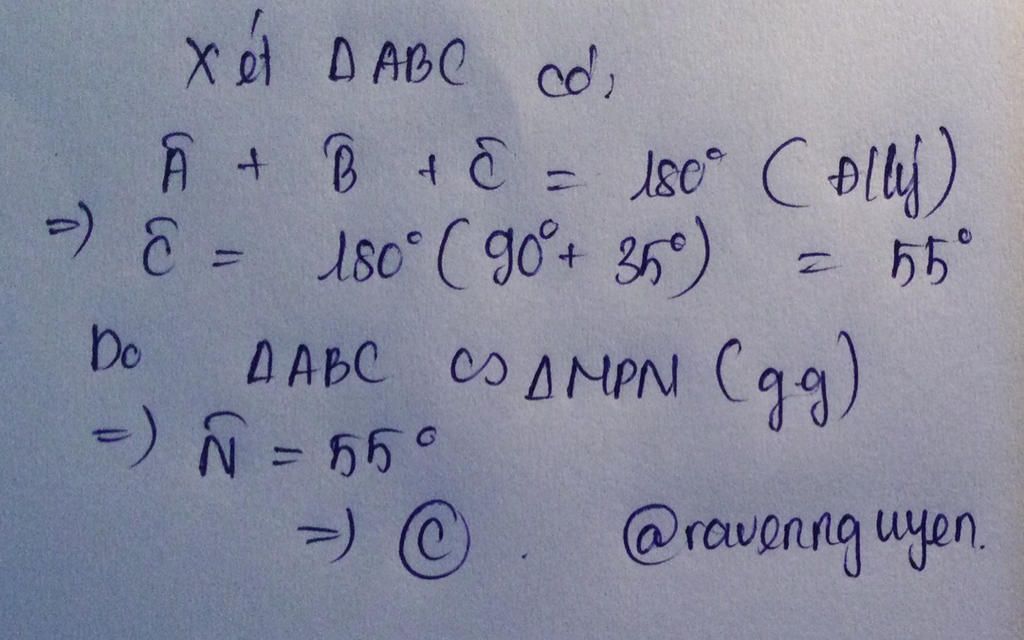 Xét ΔABC có,
Â + B̂ + Ĉ = 180° (Đ/lý)
=) Ĉ = 180° (90° + 35°) = 55°
Do ΔABC ∽ ΔMPN (gg)
=) N̂ = 55°
=) Ⓒ . @ravennguyen.